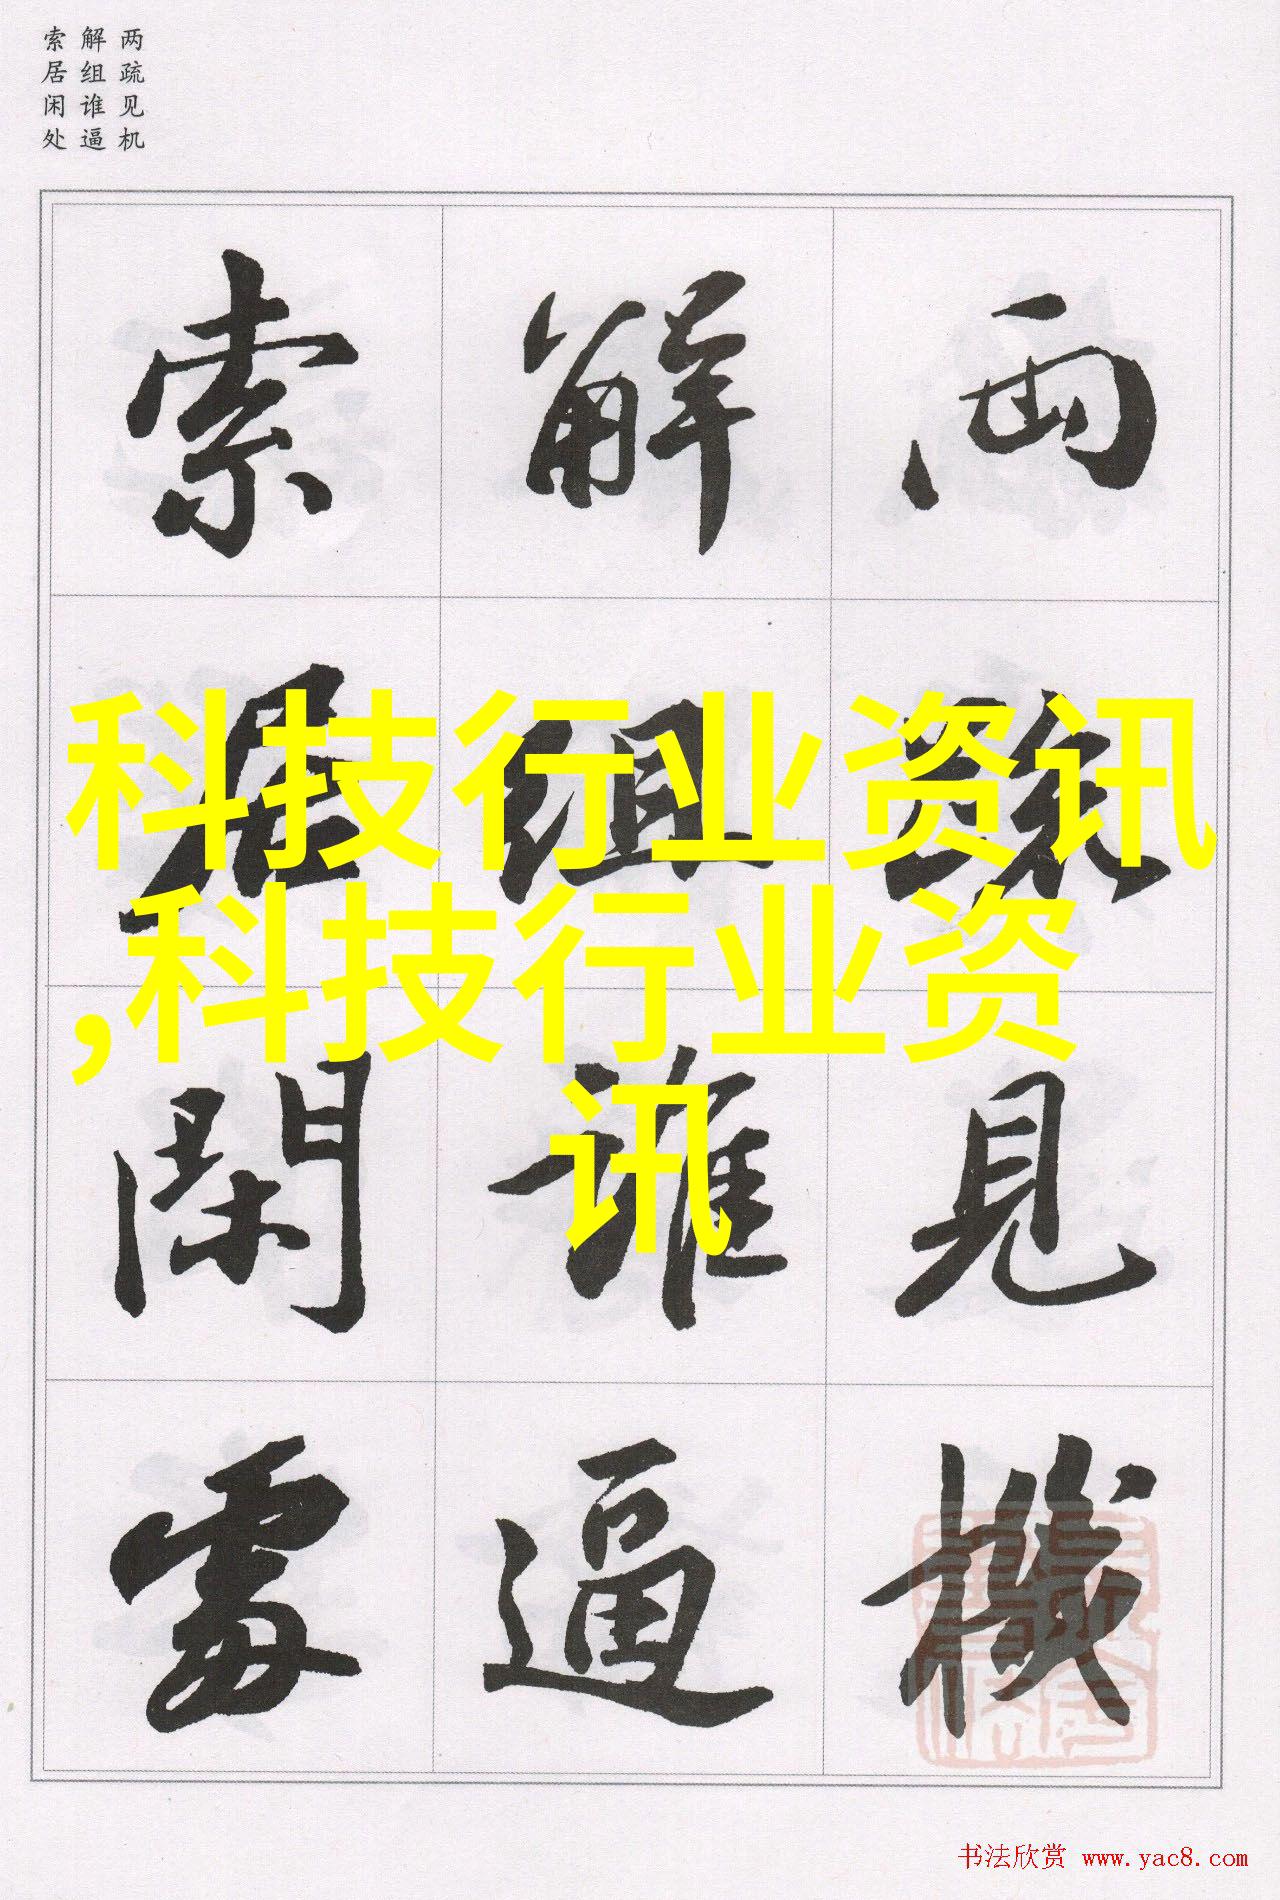 两疏见机
解组谁逼
索居闲处
兩疏見機
解組誰逼
索居閑處
科技行业资讯
,科技行业资
讯
书法欣赏 www.yac8.com